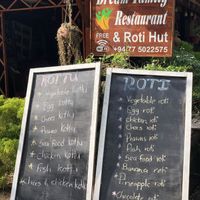 Dream Family
Restaurant
FREE
& Roti Hut
+94 77 5022575
KOTTU
* vegetable kottu
* Egg kottu
* Chees kottu
* Prawns kottu
* Sea Food kottu
* Chicken kottu
* Fish kottu
* Chees & chicken kottu
ROTI
* Vegetable roti
* Egg roti
* chicken roti
* Chees roti
* Prawns roti
* Fish roti
* Sea food roti
* Banana roti
* Pineapple roti
* chocolate roti